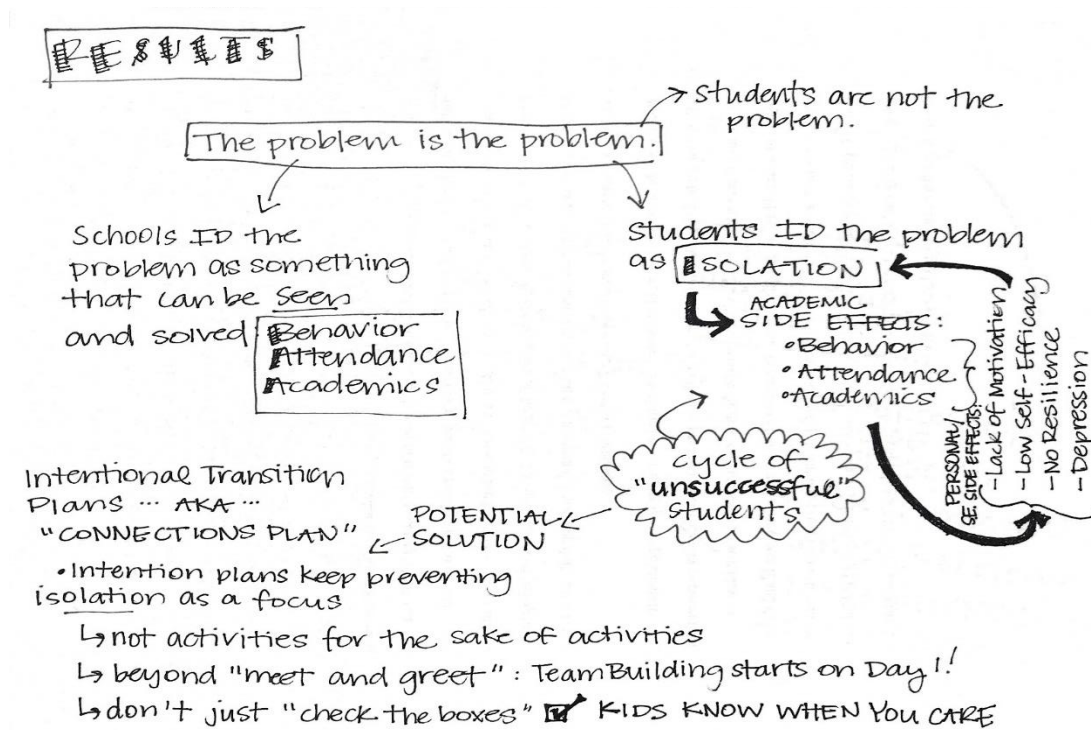 RESULTS
→ Students are not the
problem.
The problem is the problem.
Schools ID the
problem as something
that can be seen
and solved:
Behavior
Attendance
Academics
Students ID the problem
as ISOLATION
ACADEMIC
SIDE EFFECTS:
• Behavior
• Attendance
• Academics
PERSONAL/
SE. SIDE EFFECTS:
- Lack of Motivation
- Low Self-Efficacy
- No Resilience
- Depression
cycle of
"unsuccessful"
students
POTENTIAL
SOLUTION
Intentional Transition
Plans ... AKA ...
"CONNECTIONS PLAN"
• Intention plans keep preventing
isolation as a focus
↳ not activities for the sake of activities
↳ beyond "meet and greet": TeamBuilding starts on Day 1!
↳ don't just "check the boxes" ☑ KIDS KNOW WHEN YOU CARE